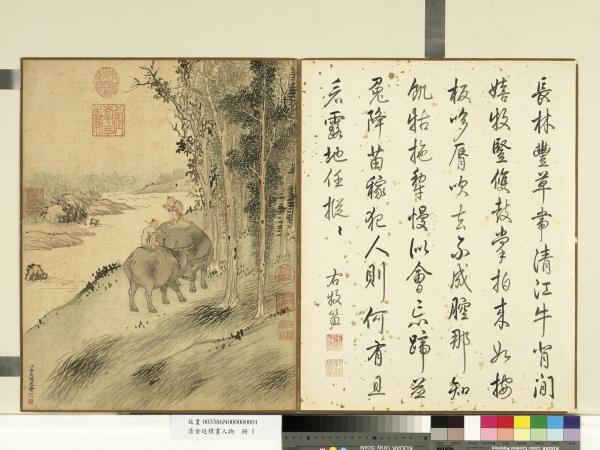 長林豐草帶清江牛背間
嬉牧豎雙鼓掌拍來如按
板哆脣吹去不成腔那知
飢牯拖犂慢似會忘蹄並
兔降苗稼犯人則何有且
看露地任摐〻
右牧笛
故畫 003386N000000001
清金廷標畫人物 冊 1